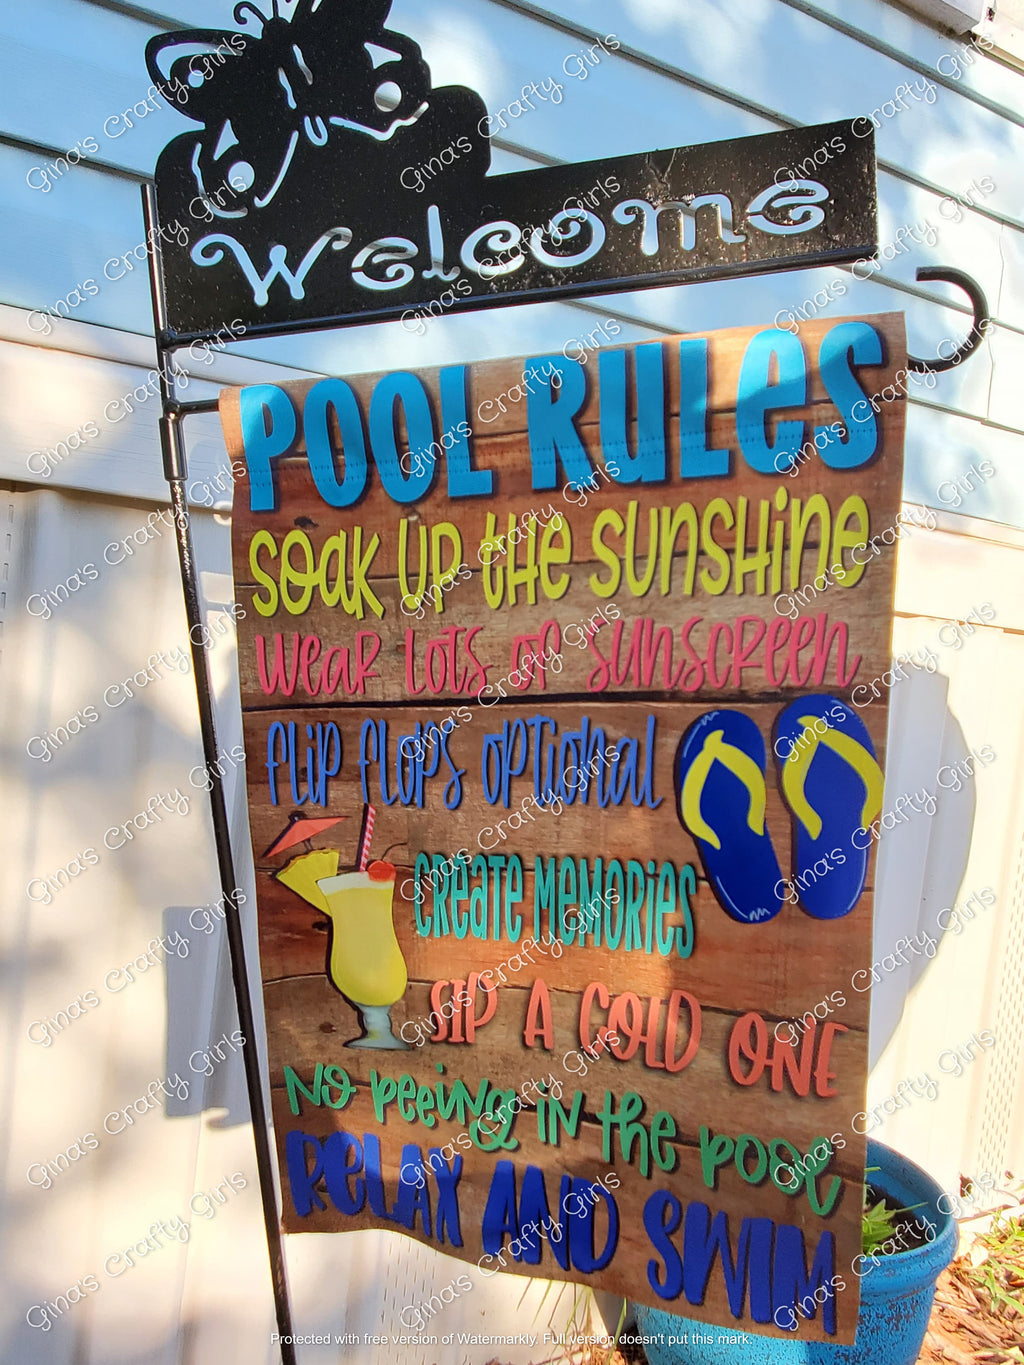 Welcome
POOL RULES
SOAK UP THE SUNSHINE
WEAR LOTS OF SUNSCREEN
FLIP FLOPS OPTIONAL
CREATE MEMORIES
SIP A COLD ONE
NO PEEING IN THE POOL
RELAX AND SWIM
Gina's Crafty Girls
Protected with free version of Watermarkly. Full version doesn't put this mark.